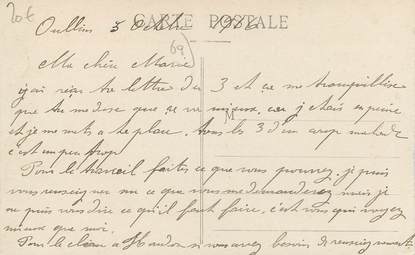 20€
CARTE POSTALE
Oullins 3 octobre 1926
69)
Ma chère Marie
j'ai reçu ta lettre du 3 et ça me tranquillise
que tu me dise que ça va mieux, car j'étais en peine
M
et je me mets a ta place, tous les 3 d'un coup malade
c'est un peu trop
Pour le travail faites ce que vous pourrez, je puis
vous renseigner sur ce que vous me demanderez mais je
ne puis vous dire ce qu'il faut faire, c'est vous qui voyez
mieux que moi.
Pour le si vous avez besoin de renseignement